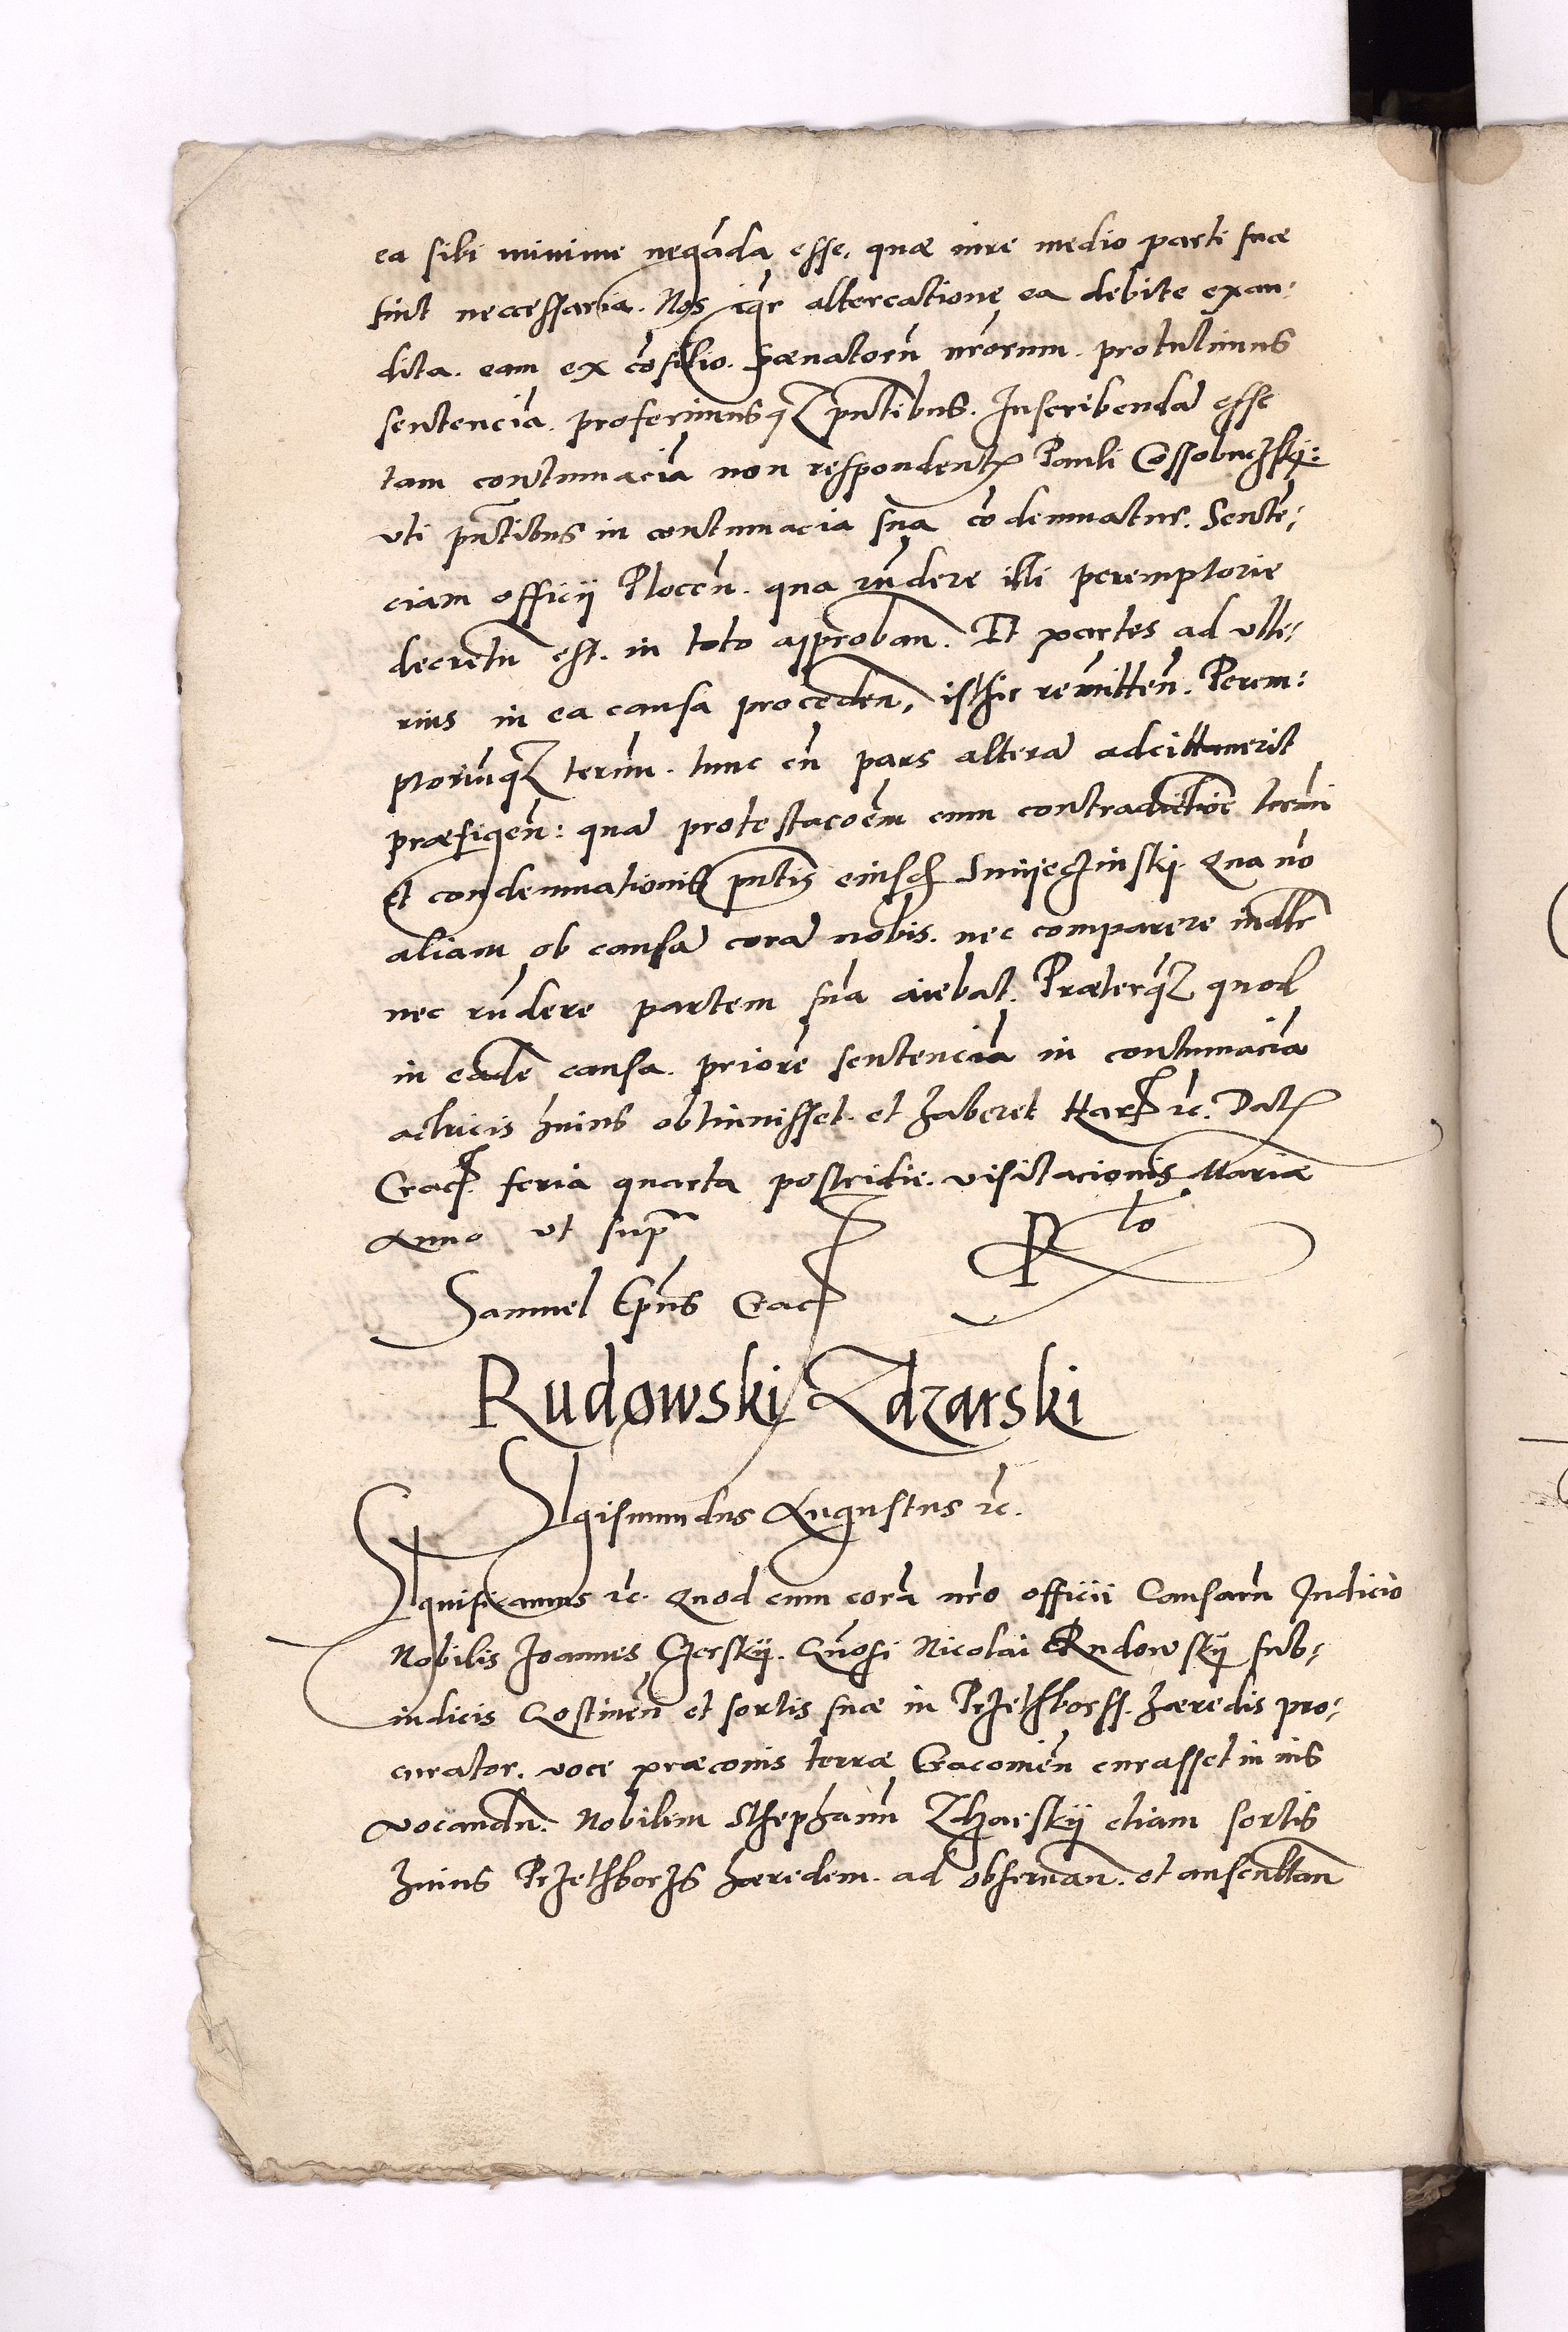 ea sibi minime negāda esse. quæ iure medio parti suæ
sint neccessaria. Nos igr̄ altercatione ea debite exau:
dita. eam ex cōsilio. Sænatorū nr̄orum. protulimus
sentenciā. proferimusqꝫ pn̄tibus. Inscribendā esse
tam contumaciā non respondentꝭ Pauli Cossobuczskÿ:
vti pn̄tibus in contumacia sua cōdemnatur. Sentē:
ciam officÿ Ploceñ. qua rn̄dere illi peremptorie
decretū est. in toto approbañ. Et partes ad vlte:
rius in ea causa procedeñ, isthic remitteñ. Perem:
ptoriūqꝫ termn̄. tunc cū pars alterā adcittauerit
præfigeñ: quā protestacoēm cum contradictiōe term̄i
Et condemnationis pn̄tis eiusdē Smÿeczinskÿ. Qua nō
aliam ob causā corā nobis. nec comparere
nec rn̄dere partem suā aiebat. Præterqꝫ quod
in eadē causa. priorē sentenciā in contumaciā
actricis huius obtinuisset. et haberet Harꝭ ꝛc. Datꝭ
Cracꝭ feria quarta postridie. visitacionis Mariæ
Anno ut supᷓ
Samuel Ep̄us Crac
Rudowski Zdzarski
SIgismundus Augustus ꝛc.
SIgnificamus ꝛc. Quod cum corā nr̄o officii Causarū Iudicio
Nobilis Joannes Gerskÿ. Gn̄osi Nicolai Rudowskÿ sub:
iudicis Gostineñ et sortis suæ in Przethborss. hæredis pro:
curator. voce præconis terræ Cracouieñ curasset in ius
vocandū. Nobilem Sthephanū Zdzarskÿ etiam sortis
huius Przethborzs hæredem. ad obseruañ. et auscultañ